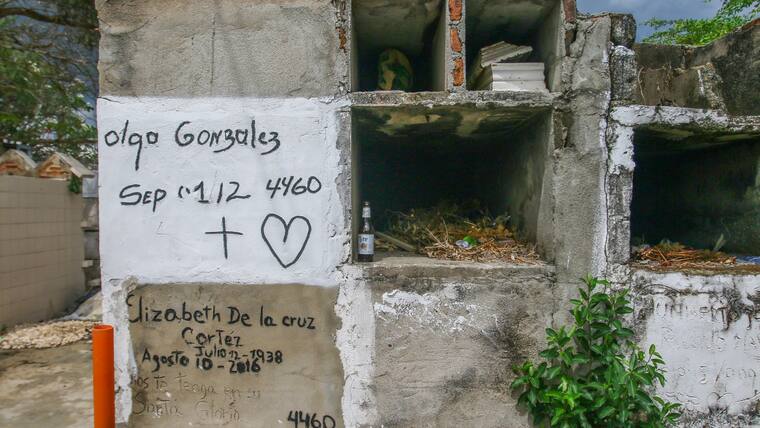 olga Gonzalez
Sep 01/2 4460
Elizabeth De la cruz
Cortez
Julio 12-1938
Agosto 10-2016
Dios te tenga en su
Santa Gloria
4460